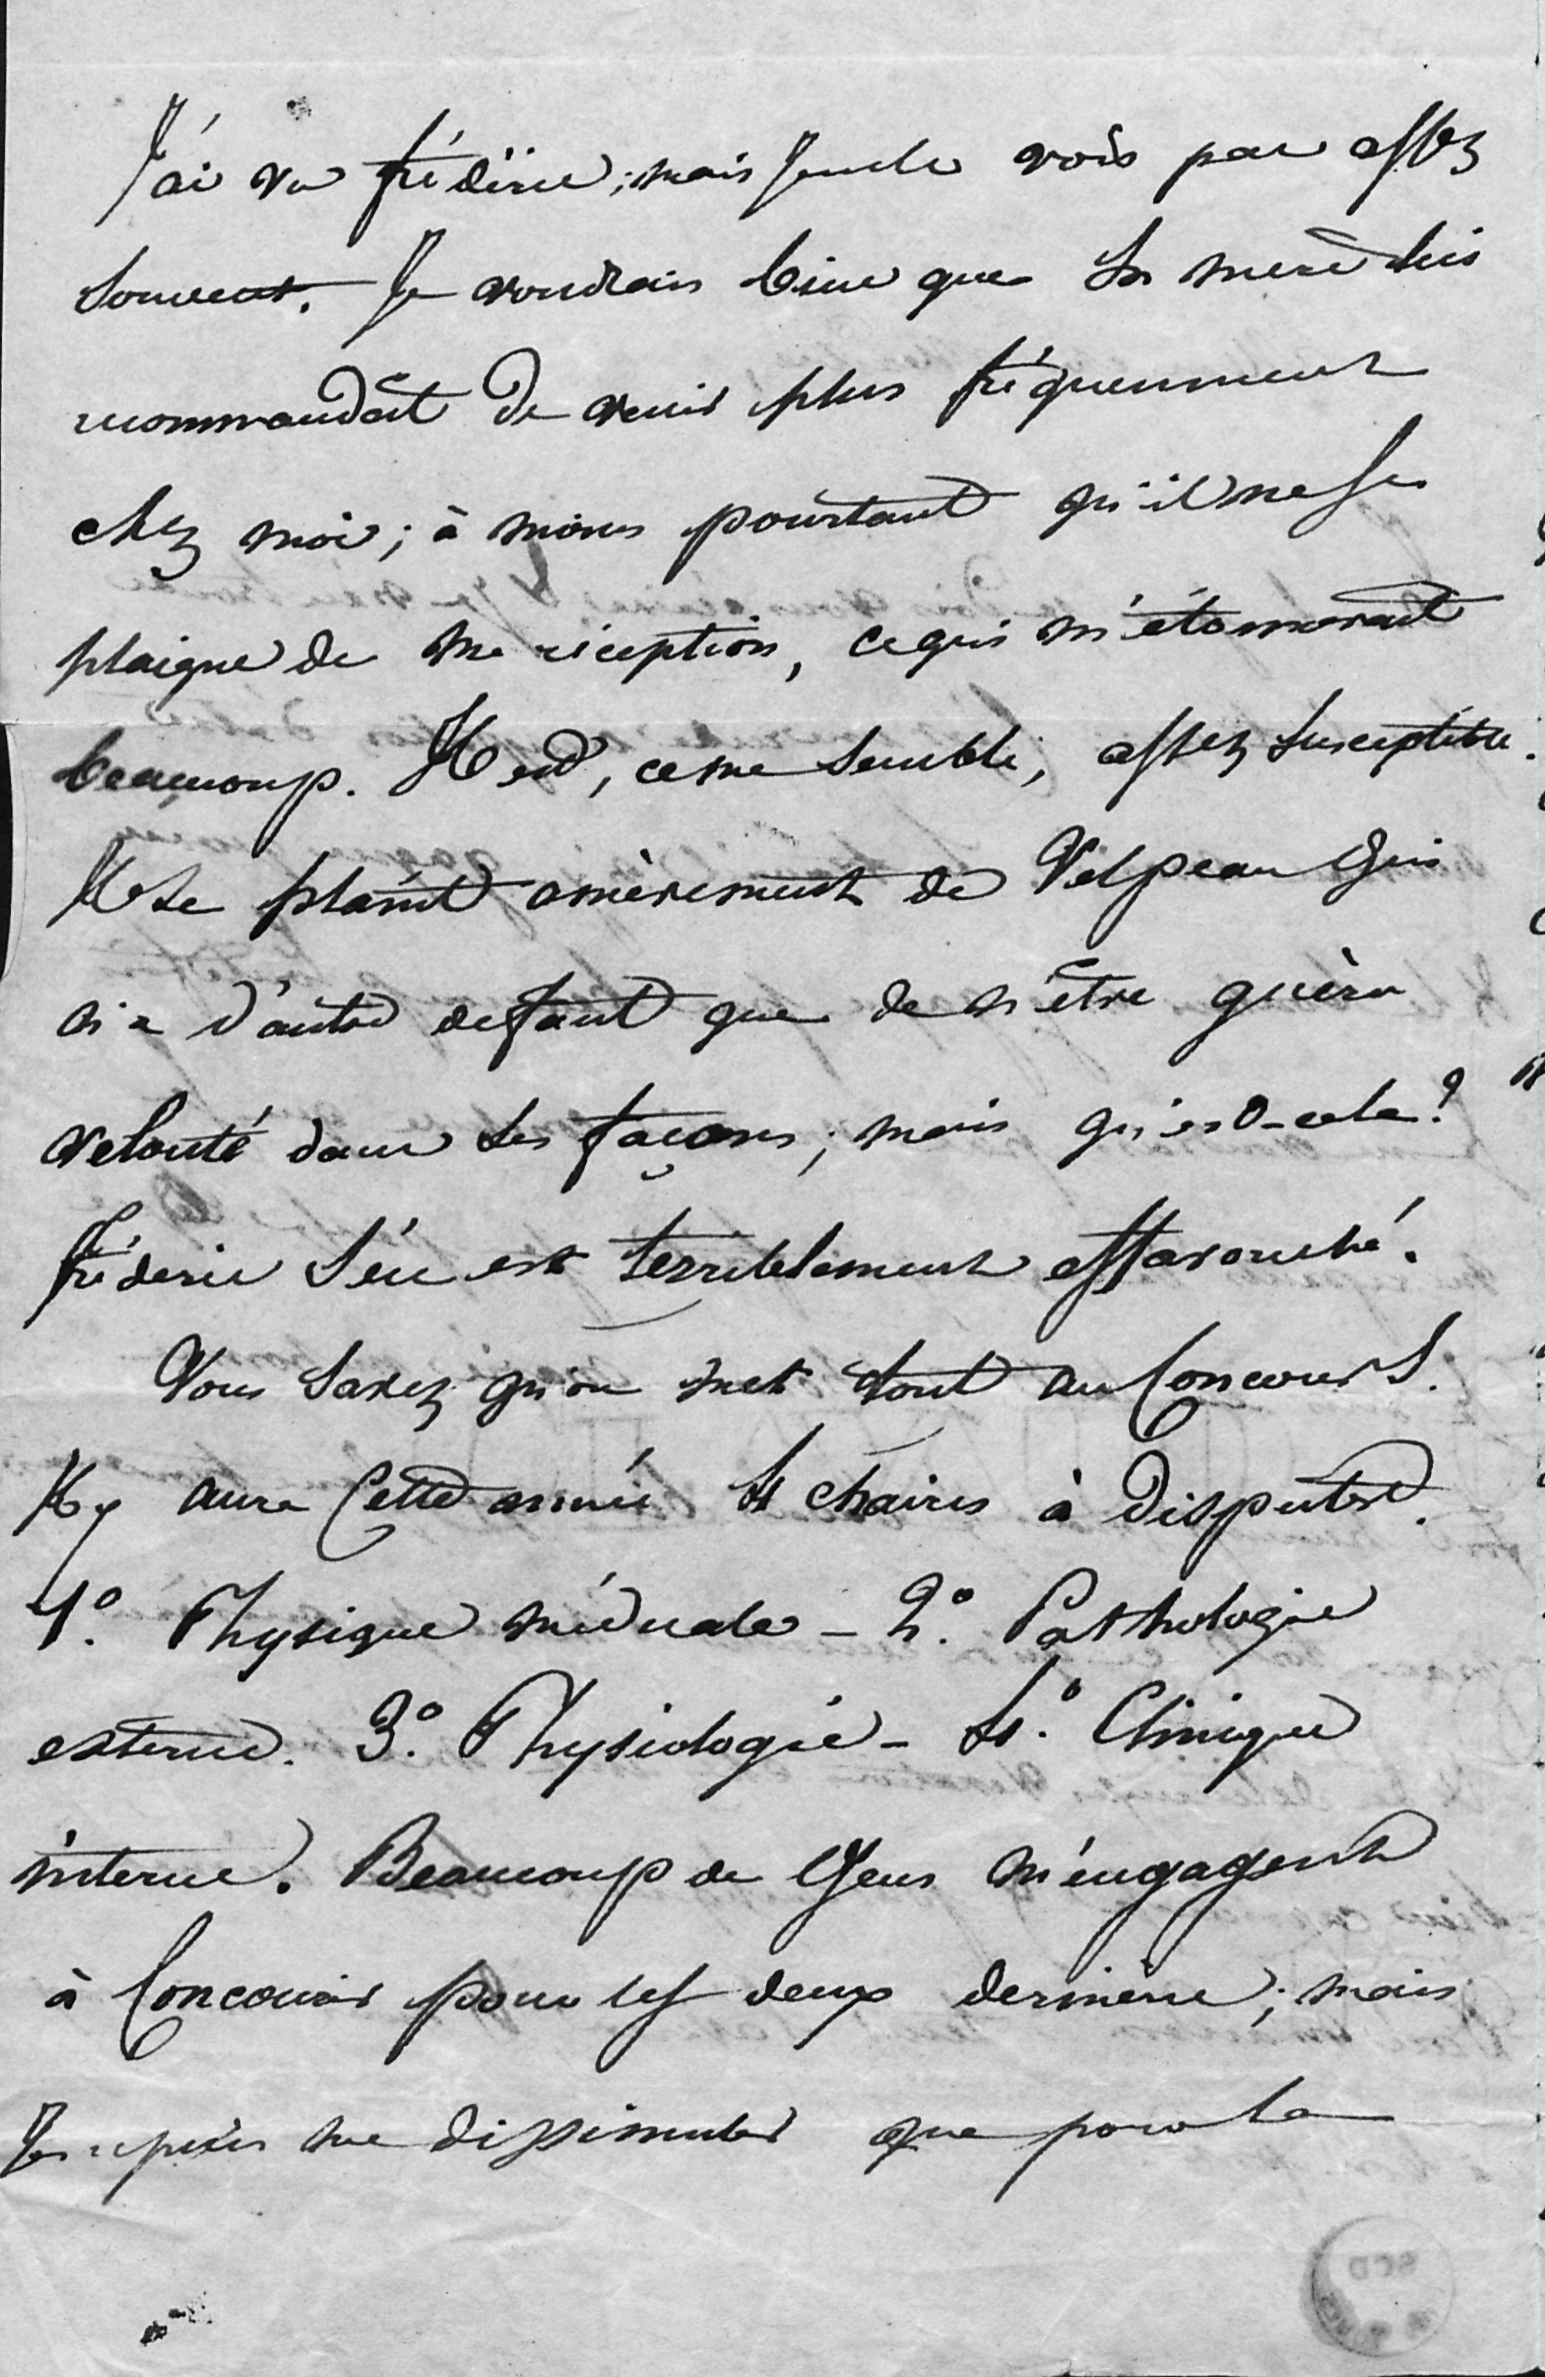 J'ai vu frédéric; mais je ne le vois pas assez
souvent. Je voudrais bien que sa mère lui
recommandât de venir plus fréquemment
chez moi; à moins pourtant qu'il ne se
plaigne de ma réception, ce qui m'étonnerait
beaucoup. Il est, ce me semble, assez susceptible.
Il se plaint amèrement de Velpeau qui
n'a d'autre defaut que de n'être guère
velouté dans ses façons; mais qu'est-cela?
frédéric s'en est terriblement effarouché.
Vous savez qu'on met tout au Concours.
Il y aura Cette année 4 chaires à disputer.
1º. Physique médicale - 2º. Pathologie
externe. 3º. Physiologie - 4º. Clinique
interne. Beaucoup de Gens m'engagent
à Concourir pour les deux dernières; mais
Je ne puis me dissimuler que pour la
SCD